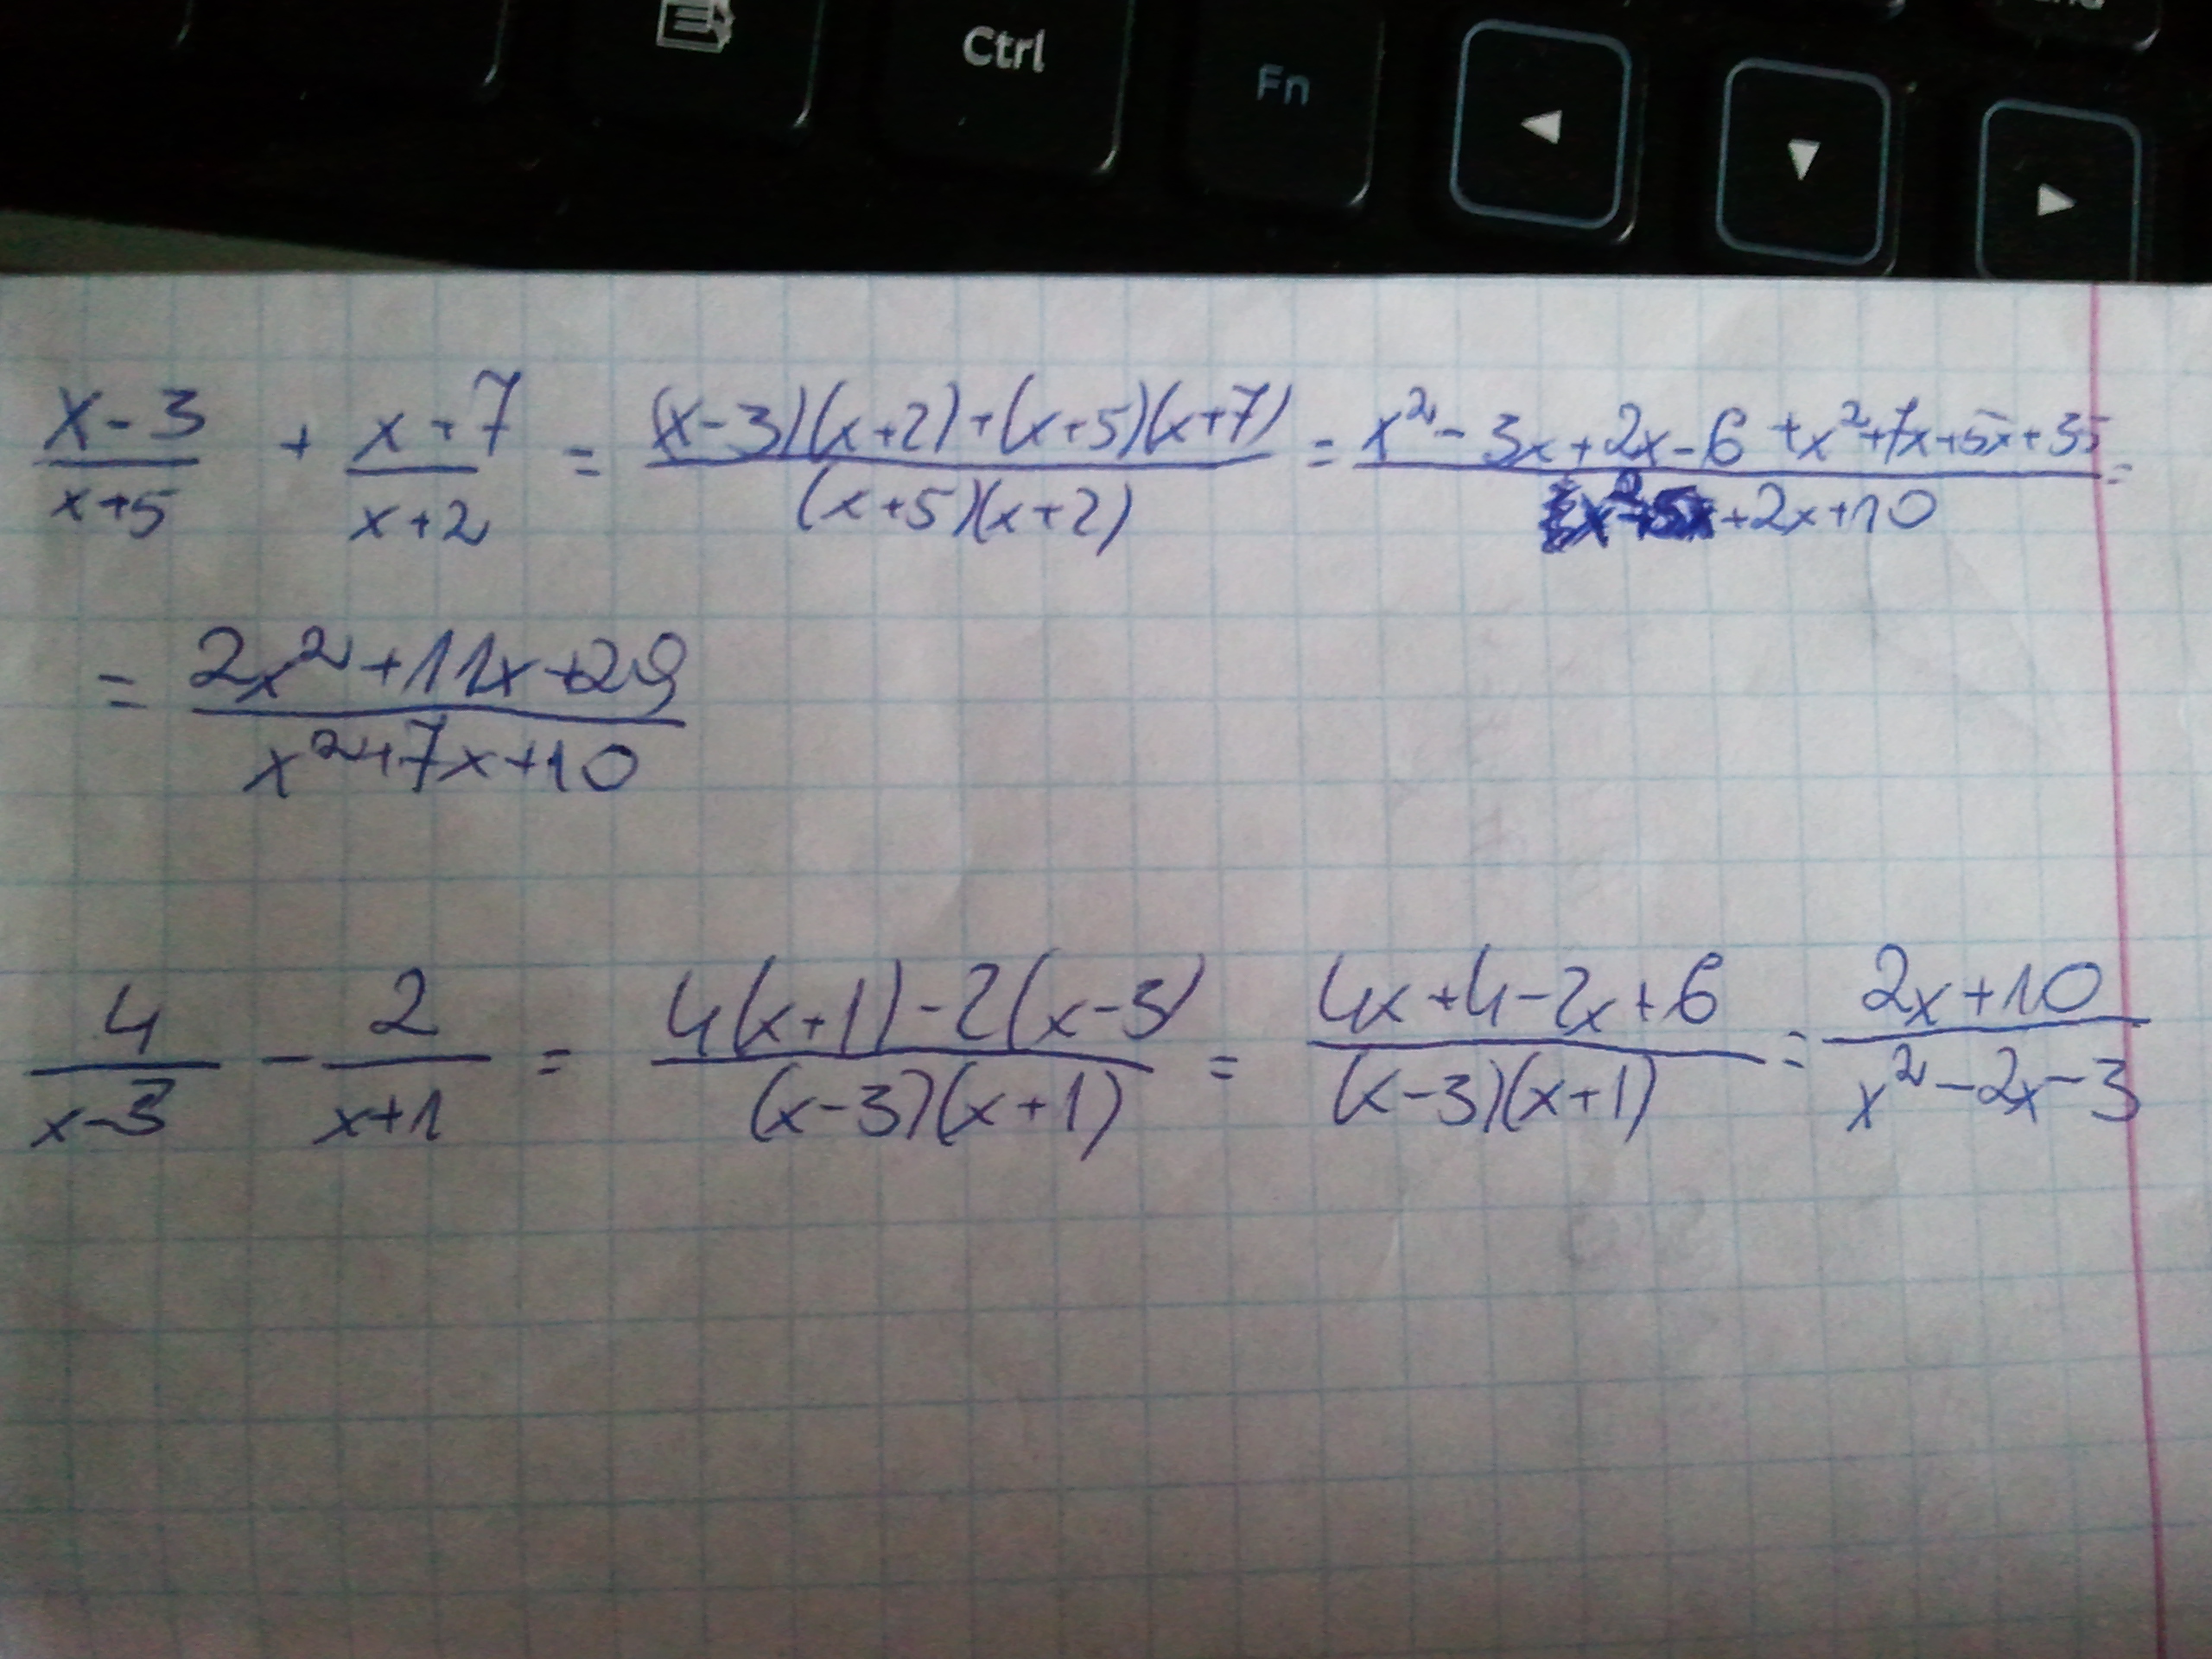 Ctrl
Fn
(x-3)/(x+5) + (x+7)/(x+2) = ((x-3)(x+2)+(x+5)(x+7))/((x+5)(x+2)) = (x²-3x+2x-6+x²+7x+5x+35)/(x²+5x+2x+10) =
= (2x²+11x+29)/(x²+7x+10)
4/(x-3) - 2/(x+1) = (4(x+1)-2(x-3))/((x-3)(x+1)) = (4x+4-2x+6)/((x-3)(x+1)) = (2x+10)/(x²-2x-3)